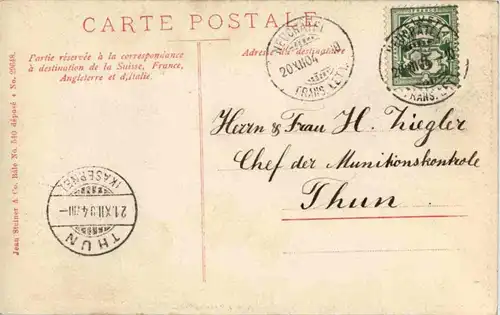 CARTE POSTALE
Partie réservée à la correspondance
à destination de la Suisse, France,
Angleterre et d'Italie.
Adresse du destinataire
NEUCHATEL
20 XII 04
TRANS. LETR.
Herrn & Frau H. Ziegler
Chef der Munitionskontrole
Thun
THUN
21.XII.04
(KASERNE)
Jean Steiner & Co. Bâle No. 540 déposé